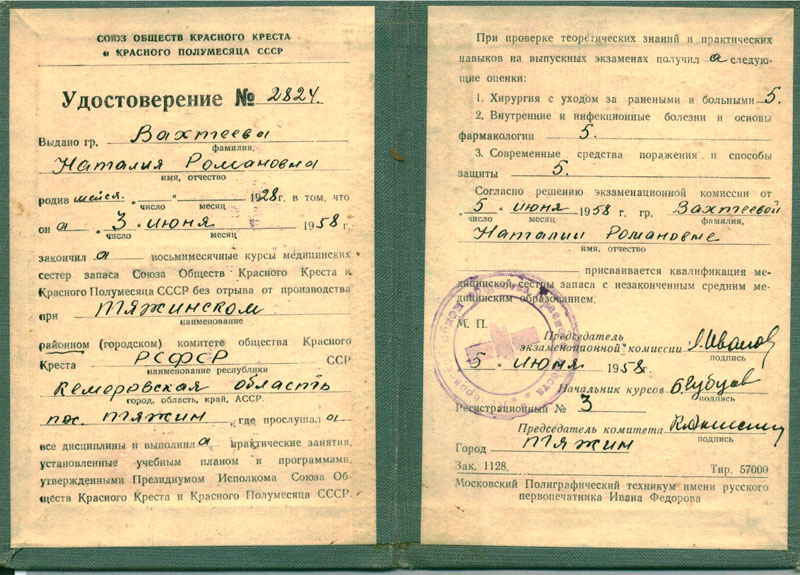 СОЮЗ ОБЩЕСТВ КРАСНОГО КРЕСТА
и КРАСНОГО ПОЛУМЕСЯЦА СССР
Удостоверение № 2824.
Выдано гр. Вахтеева
фамилия,
Наталия Романовна
имя, отчество
родив шейся „ " 1928 г. в том, что
число месяц
он а „ 3 " июня 1958 г.
число месяц
закончил а восьмимесячные курсы медицинских
сестер запаса Союза Обществ Красного Креста и
Красного Полумесяца СССР без отрыва от производства
при Тяжинском
наименование
районном (городском) комитете общества Красного
Креста РСФСР ССР
наименование республики
Кемеровская область
город, область, край, АССР.
пос. Тяжин, где прослушал а
все дисциплины и выполнил а практические занятия,
установленные учебным планом и программами,
утвержденными Президиумом Исполкома Союза Об-
ществ Красного Креста и Красного Полумесяца СССР.
При проверке теоретических знаний и практических
навыков на выпускных экзаменах получил а следую-
щие оценки:
1. Хирургия с уходом за ранеными и больными 5.
2. Внутренние и инфекционные болезни и основы
фармакологии 5.
3. Современные средства поражения и способы
защиты 5.
Согласно решению экзаменационной комиссии от
„ 5 " июня 1958 г. гр. Вахтеевой
число месяц фамилия,
Наталии Романовне
имя, отчество
присваивается квалификация ме-
дицинской сестры запаса с незаконченным средним ме-
дицинским образованием.
М. П.
Председатель
экзаменационной комиссии Иванов
подпись
5 " июня 1958 г.
Начальник курсов
подпись
Регистрационный № 3
Председатель комитета
подпись
Город Тяжин
Зак. 1128. Тир. 57000
Московский Полиграфический техникум имени русского
первопечатника Ивана Федорова